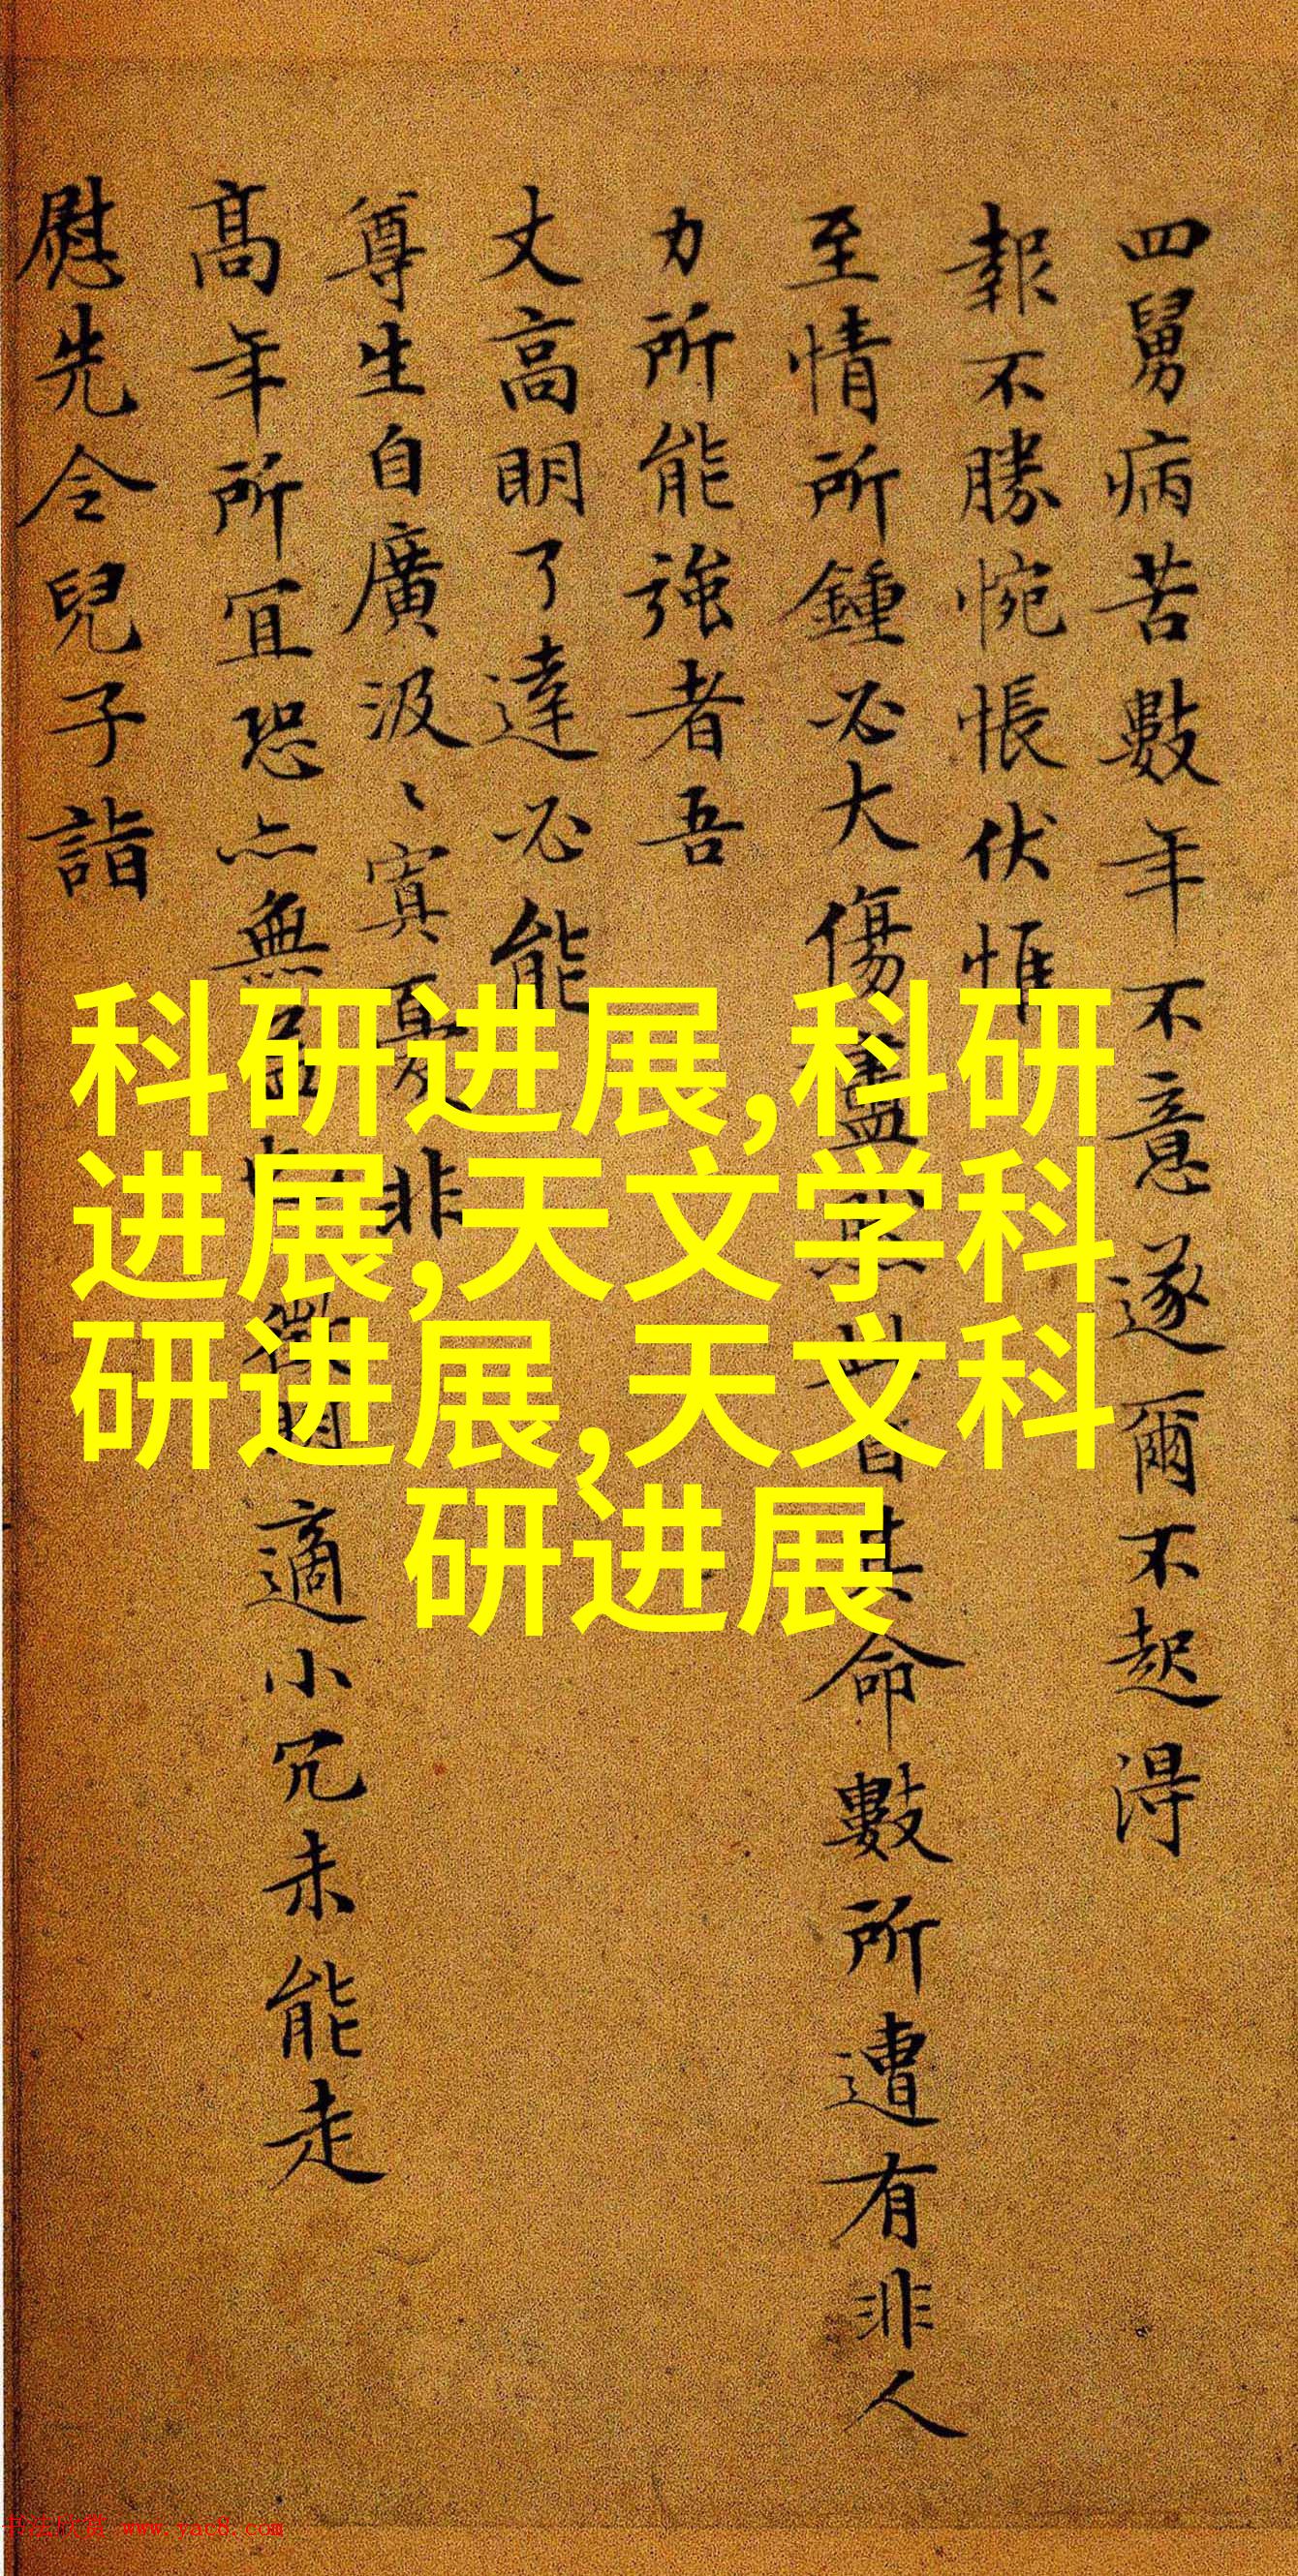 四舅病苦數年不意遂爾不起得
報不勝惋悵伏惟
至情所鍾必大傷
命數所遭有非人
力所能強者吾
丈高明了達必能
尊生自廣汲〻寘
非
高年所宜恐亦無
適小冗未能走
慰先令兒子詣
科研进展,科研
进展,天文学科
研进展,天文科
研进展
书法欣赏 www.yac8.com